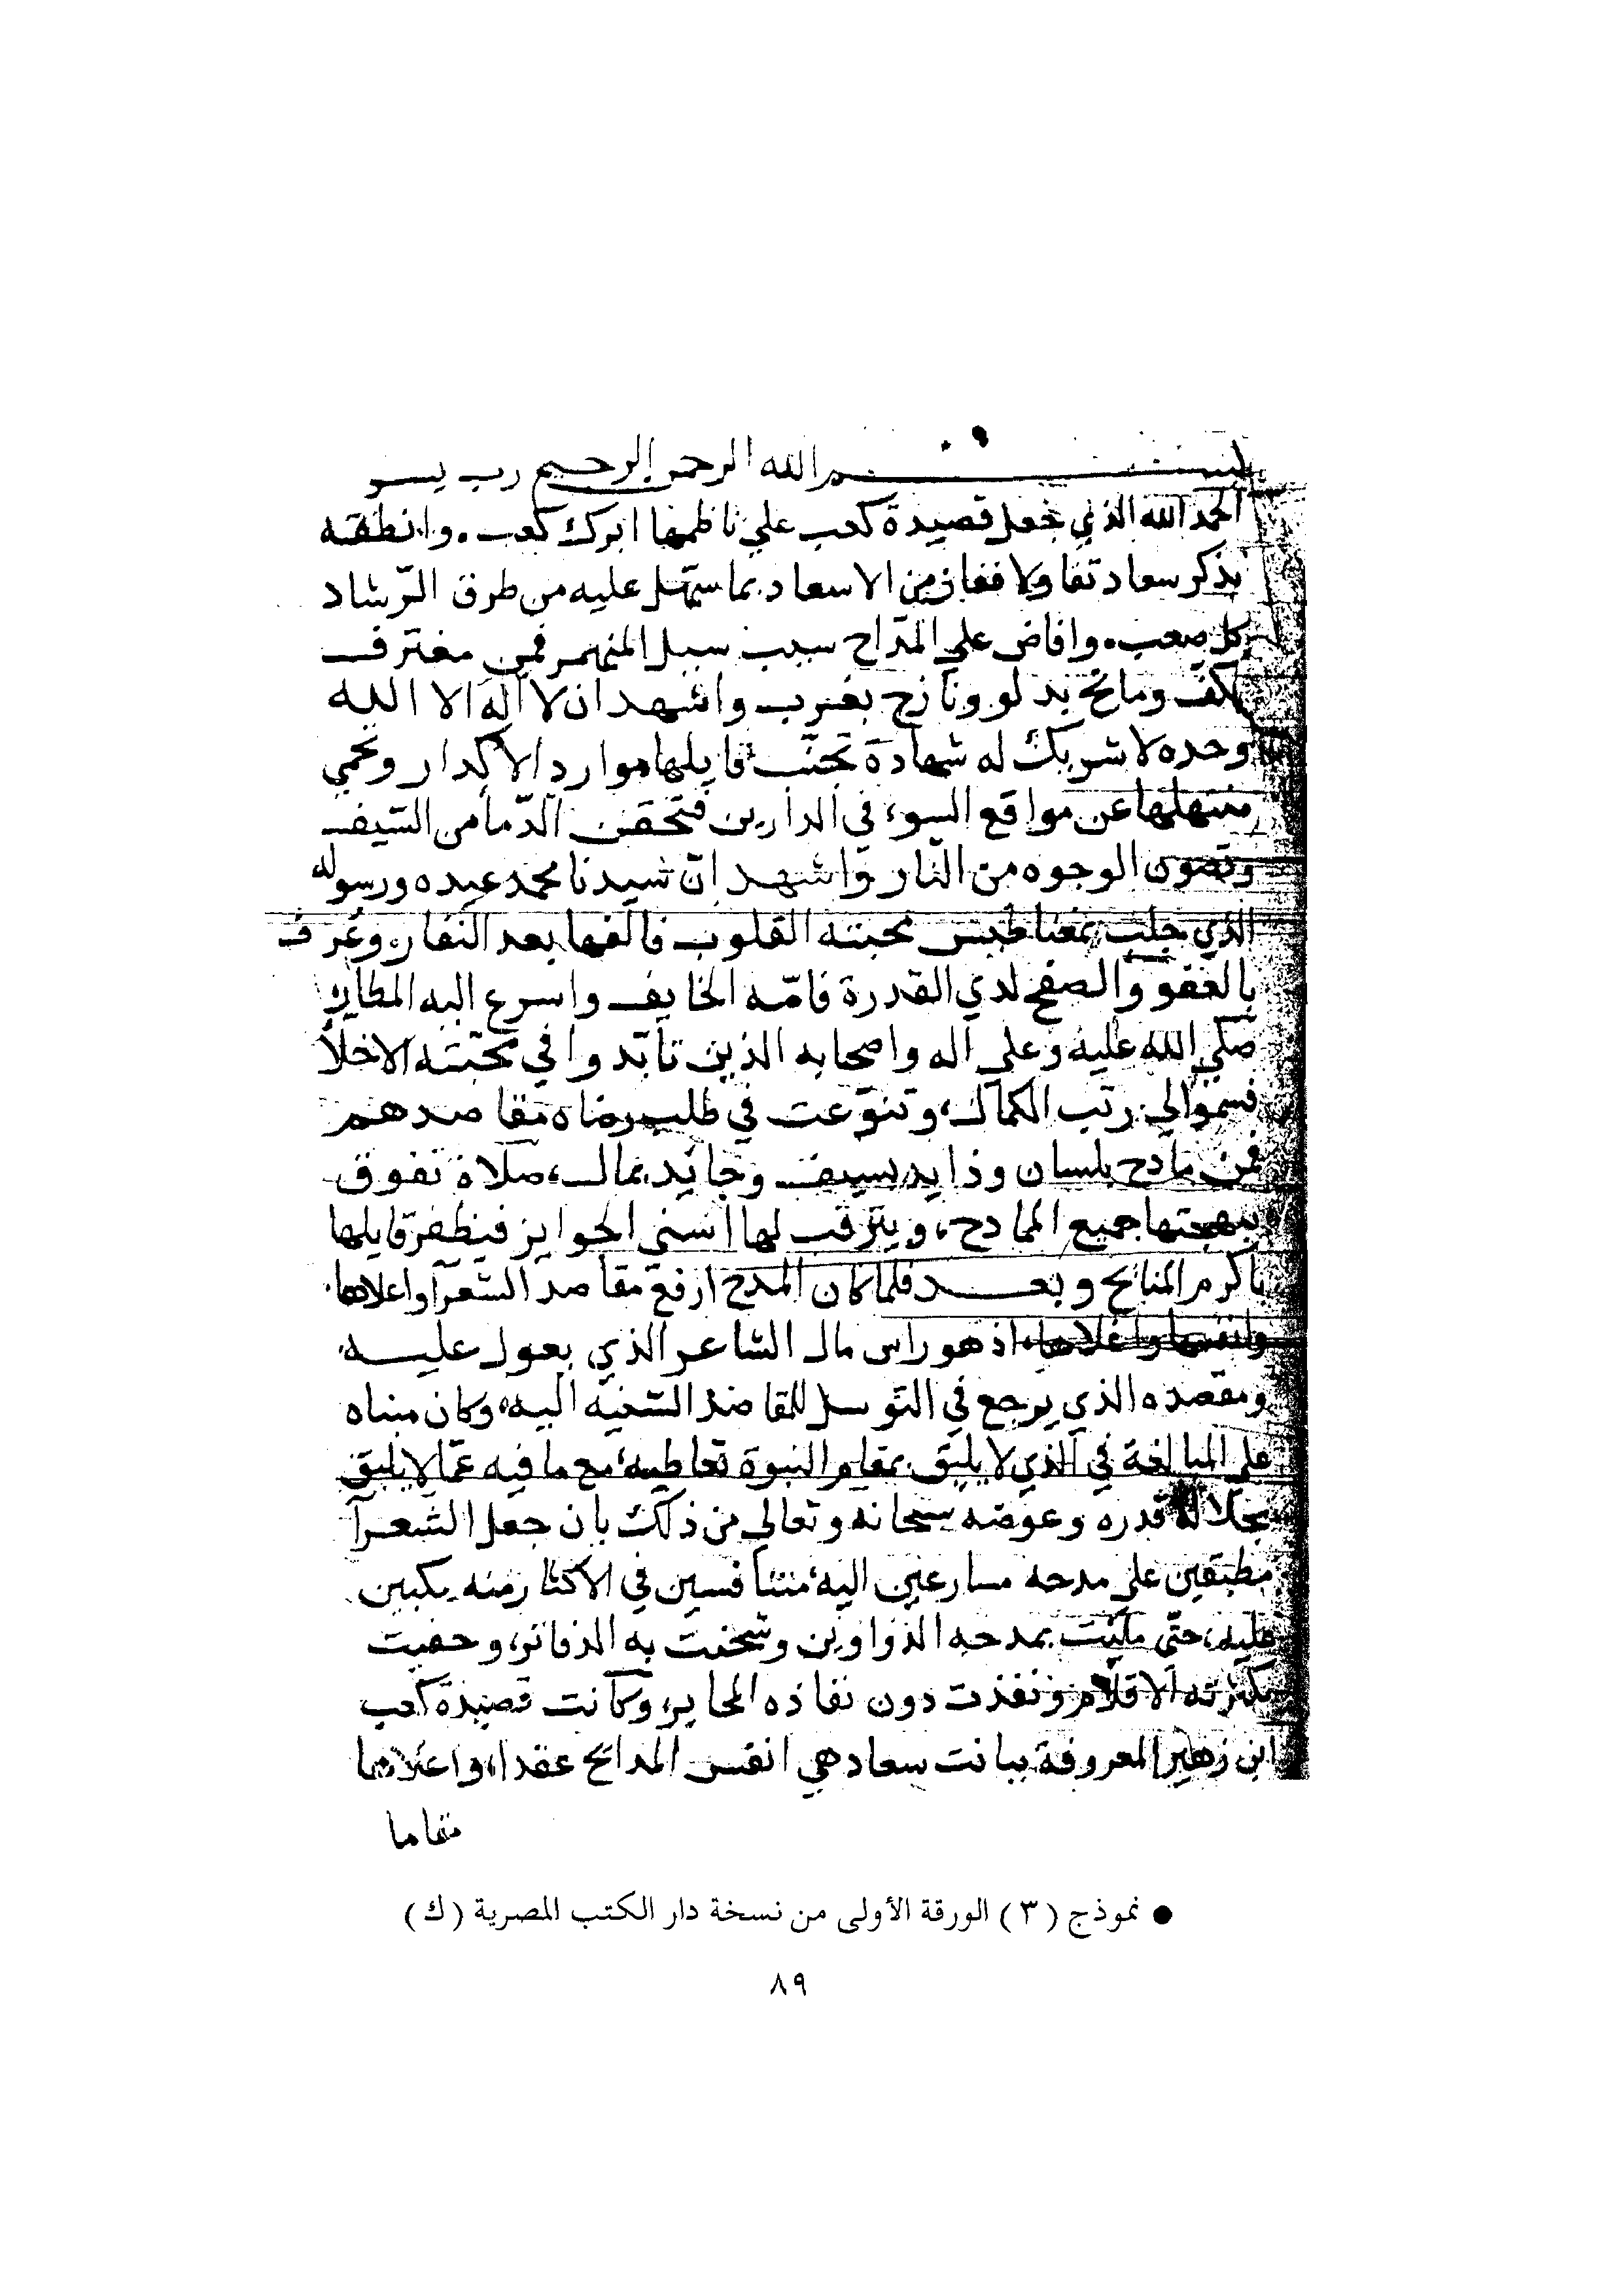 بسم الله الرحمن الرحيم رب يسر
الحمد لله الذي جعل قصيدة كعب علي ناظمها ابرك كعب. وانطقه
بذكر سعاد تفاولا ففاز من الاسعاد بما سهل عليه من طرق الرشاد
كل صعب. وافاض علي المداح سيب سيبل المنهمر فمن مغترف
بكف وماتح بدلو ونازح بغرب واشهد ان لا اله الا الله
وحده لا شريك له شهادة تجنب قايلها موارد الاكدار وتحمي
منتهلها عن مواقع السوء في الدارين فتحقن الدما من السيف
وتصون الوجوه من النار واشهد ان سيدنا محمد عبده ورسوله
الذي جلبت بمغناطيس محبته القلوب فالفها بعد النفار، وعرف
بالعفو والصفح لدي القدرة فامه الخايف واسرع اليه
صلي الله عليه وعلي اله واصحابه الذين تابدوا في محبته الاخلا
فسموا الي رتب الكمال، وتنوعت في طلب رضاه مقاصدهم
فمن مادح بلسان وذايد بسيف وجايد بمال، صلاة تفوق
ببهجتها جميع المادح، ويترقب لها اسني الجوايز فيظفر قايلها
باكرم المنايح وبعد فلما كان المدح ارفع مقاصد الشعرا واعلاها
وانفسها واغلاها، اذ هو راس مال الشاعر الذي يعول عليه
ومقصده الذي يرجع في التوسل للمقاصد السنيه اليه، وكان مبناه
علي المبالغة في الذي لا يليق بمقام النبوة تعاطيه، مع ما فيه عما لا يليق
بجلالة قدره وعوضه سبحانه وتعالي من ذلك بان جعل الشعرآ
مطبقين علي مدحه مسارعين اليه، متنافسين في الاكثار منه مكبين
عليه، حتي مليت بمدحه الدواوين وشحنت به الدفاتر، وحفيت
بكثرته الاقلام ونفذت دون نفاذه المحابر، وكانت قصيدة كعب
ابن زهير المعروفة ببانت سعاد هي انفس المدايح عقدا، واعلاها
مقاما
● نموذج (٣) الورقة الأولى من نسخة دار الكتب المصرية (ك)
٨٩